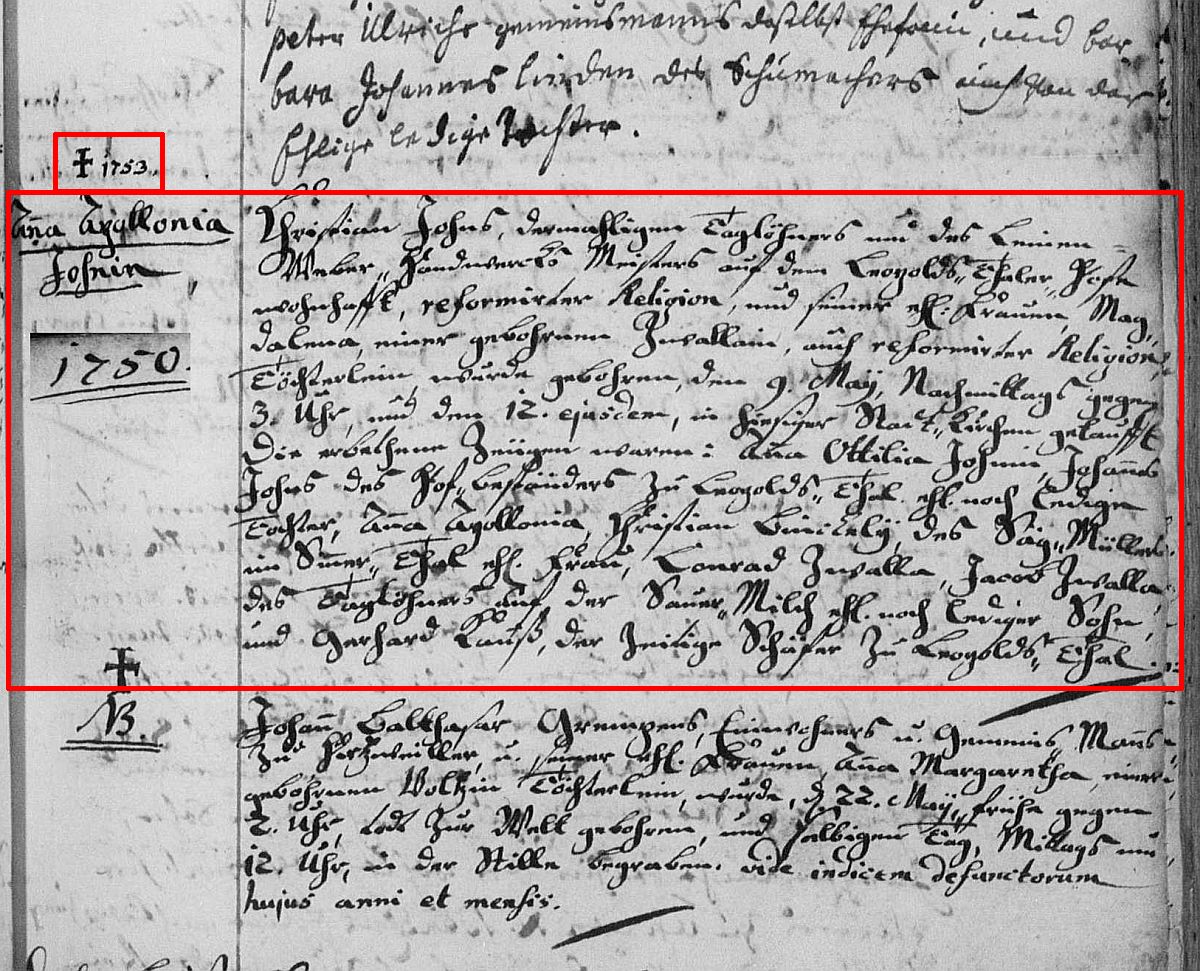 peter Ullrichs gemeinsmanns daselbst Ehefrau, und bar
bara Johannes linden des Schumachers auch von der
Ehlige ledige Tochter.
✝ 1753.
Anna Apollonia
Johnin
1750.
Christian Johns, dermahligen Taglöhners und des Leinen =
Weber „ Handwercks Meisters auf dem Leopolds „ Thaler „ Hofe
wohnhafft, reformirter Religion, und seiner ehl: Frauen, Mag„
dalena, einer gebohrnen Zuvallain, auch reformirter Religion,
Töchterlein, wurde gebohren, den 9. Maÿ, Nachmittags gegen
3. Uhr, und den 12. ejusdem, in hiesiger Statt „ Kirchen getaufft
Die erbethene Zeügen waren: Anna Ottilia Johnin, Johannes
Johns des Hof „ beständers zu Leopolds „ Thal ehl. noch ledige
Tochter, Anna Apollonia, Christian des Säg „ Müllers
im Thal ehl. Frau, Conrad Zuvalla, Jacob Zuvalla,
des Taglöhners auf der Sauer „ Milch ehl. noch lediger Sohn,
und Gerhard Lauß, der Zeitige Schäfer zu Leopolds „ Thal.
✝
NB.
Johann Balthasar Grempens, Einwohners u. Gemeins Manns
zu Hirzweiller, u. seiner ehl. Frauen, Anna Margaretha, einer
gebohrnen Voltzin Töchterlein, wurde, d. 22. Maÿ, frühe gegen
2. Uhr, todt zur Welt gebohren, und selbigen Tag, Mittags um
12. Uhr, in der Stille begraben. vide indicem defunctorum
hujus anni et mensis.